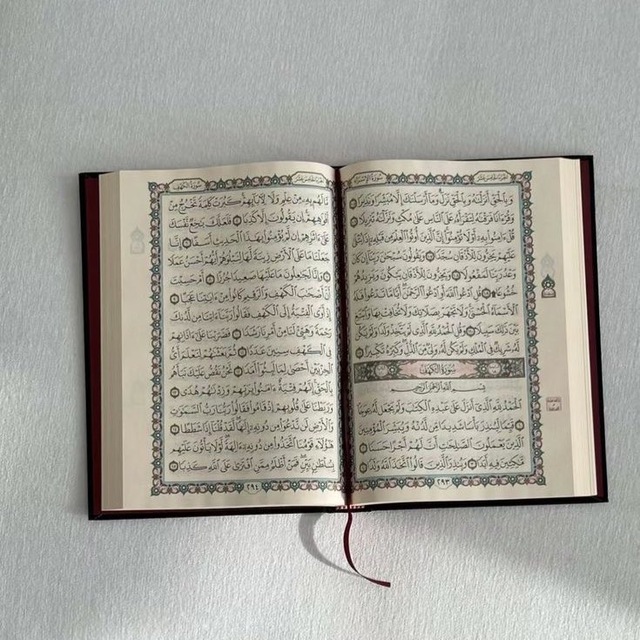 سُورَةُ الإِسْرَاءِ
الجُزْءُ الخَامِسَ عَشَرَ
وَبِالْحَقِّ أَنزَلْنَٰهُ وَبِالْحَقِّ نَزَلَ وَمَا أَرْسَلْنَٰكَ إِلَّا مُبَشِّرًا وَنَذِيرًا ١٠٥
وَقُرْءَانًا فَرَقْنَٰهُ لِتَقْرَأَهُ عَلَى النَّاسِ عَلَىٰ مُكْثٍ وَنَزَّلْنَٰهُ تَنزِيلًا ١٠٦
قُلْ ءَامِنُوا بِهِ أَوْ لَا تُؤْمِنُوا إِنَّ الَّذِينَ أُوتُوا الْعِلْمَ مِن قَبْلِهِ إِذَا يُتْلَىٰ
عَلَيْهِمْ يَخِرُّونَ لِلْأَذْقَانِ سُجَّدًا ١٠٧ وَيَقُولُونَ سُبْحَٰنَ رَبِّنَا إِن كَانَ
وَعْدُ رَبِّنَا لَمَفْعُولًا ١٠٨ وَيَخِرُّونَ لِلْأَذْقَانِ يَبْكُونَ وَيَزِيدُهُمْ
خُشُوعًا ١٠٩ قُلِ ادْعُوا اللَّهَ أَوِ ادْعُوا الرَّحْمَٰنَ أَيًّا مَّا تَدْعُوا فَلَهُ
الْأَسْمَاءُ الْحُسْنَىٰ وَلَا تَجْهَرْ بِصَلَاتِكَ وَلَا تُخَافِتْ بِهَا وَابْتَغِ
بَيْنَ ذَٰلِكَ سَبِيلًا ١١٠ وَقُلِ الْحَمْدُ لِلَّهِ الَّذِي لَمْ يَتَّخِذْ وَلَدًا وَلَمْ يَكُن
لَّهُ شَرِيكٌ فِي الْمُلْكِ وَلَمْ يَكُن لَّهُ وَلِيٌّ مِّنَ الذُّلِّ وَكَبِّرْهُ تَكْبِيرًا ١١١
سُورَةُ الكَهْفِ
بِسْمِ اللَّهِ الرَّحْمَٰنِ الرَّحِيمِ
الْحَمْدُ لِلَّهِ الَّذِي أَنزَلَ عَلَىٰ عَبْدِهِ الْكِتَٰبَ وَلَمْ يَجْعَل لَّهُ عِوَجًا
١ قَيِّمًا لِّيُنذِرَ بَأْسًا شَدِيدًا مِّن لَّدُنْهُ وَيُبَشِّرَ الْمُؤْمِنِينَ
الَّذِينَ يَعْمَلُونَ الصَّٰلِحَٰتِ أَنَّ لَهُمْ أَجْرًا حَسَنًا ٢
مَّٰكِثِينَ فِيهِ أَبَدًا ٣ وَيُنذِرَ الَّذِينَ قَالُوا اتَّخَذَ اللَّهُ وَلَدًا ٤
٢٩٣
سُورَةُ الكَهْفِ
الجُزْءُ الخَامِسَ عَشَرَ
مَّا لَهُم بِهِ مِنْ عِلْمٍ وَلَا لِءَابَائِهِمْ كَبُرَتْ كَلِمَةً تَخْرُجُ مِنْ
أَفْوَٰهِهِمْ إِن يَقُولُونَ إِلَّا كَذِبًا ٥ فَلَعَلَّكَ بَٰخِعٌ نَّفْسَكَ
عَلَىٰ ءَاثَٰرِهِمْ إِن لَّمْ يُؤْمِنُوا بِهَٰذَا الْحَدِيثِ أَسَفًا ٦ إِنَّا
جَعَلْنَا مَا عَلَى الْأَرْضِ زِينَةً لَّهَا لِنَبْلُوَهُمْ أَيُّهُمْ أَحْسَنُ عَمَلًا
٧ وَإِنَّا لَجَٰعِلُونَ مَا عَلَيْهَا صَعِيدًا جُرُزًا ٨ أَمْ حَسِبْتَ
أَنَّ أَصْحَٰبَ الْكَهْفِ وَالرَّقِيمِ كَانُوا مِنْ ءَايَٰتِنَا عَجَبًا ٩
إِذْ أَوَى الْفِتْيَةُ إِلَى الْكَهْفِ فَقَالُوا رَبَّنَا ءَاتِنَا مِن لَّدُنكَ
رَحْمَةً وَهَيِّئْ لَنَا مِنْ أَمْرِنَا رَشَدًا ١٠ فَضَرَبْنَا عَلَىٰ ءَاذَانِهِمْ
فِي الْكَهْفِ سِنِينَ عَدَدًا ١١ ثُمَّ بَعَثْنَٰهُمْ لِنَعْلَمَ أَيُّ
الْحِزْبَيْنِ أَحْصَىٰ لِمَا لَبِثُوا أَمَدًا ١٢ نَّحْنُ نَقُصُّ عَلَيْكَ نَبَأَهُم
بِالْحَقِّ إِنَّهُمْ فِتْيَةٌ ءَامَنُوا بِرَبِّهِمْ وَزِدْنَٰهُمْ هُدًى ١٣
وَرَبَطْنَا عَلَىٰ قُلُوبِهِمْ إِذْ قَامُوا فَقَالُوا رَبُّنَا رَبُّ السَّمَٰوَٰتِ
وَالْأَرْضِ لَن نَّدْعُوَا مِن دُونِهِ إِلَٰهًا لَّقَدْ قُلْنَا إِذًا شَطَطًا ١٤
هَٰؤُلَاءِ قَوْمُنَا اتَّخَذُوا مِن دُونِهِ ءَالِهَةً لَّوْلَا يَأْتُونَ عَلَيْهِم
بِسُلْطَٰنٍ بَيِّنٍ فَمَنْ أَظْلَمُ مِمَّنِ افْتَرَىٰ عَلَى اللَّهِ كَذِبًا ١٥
٢٩٤